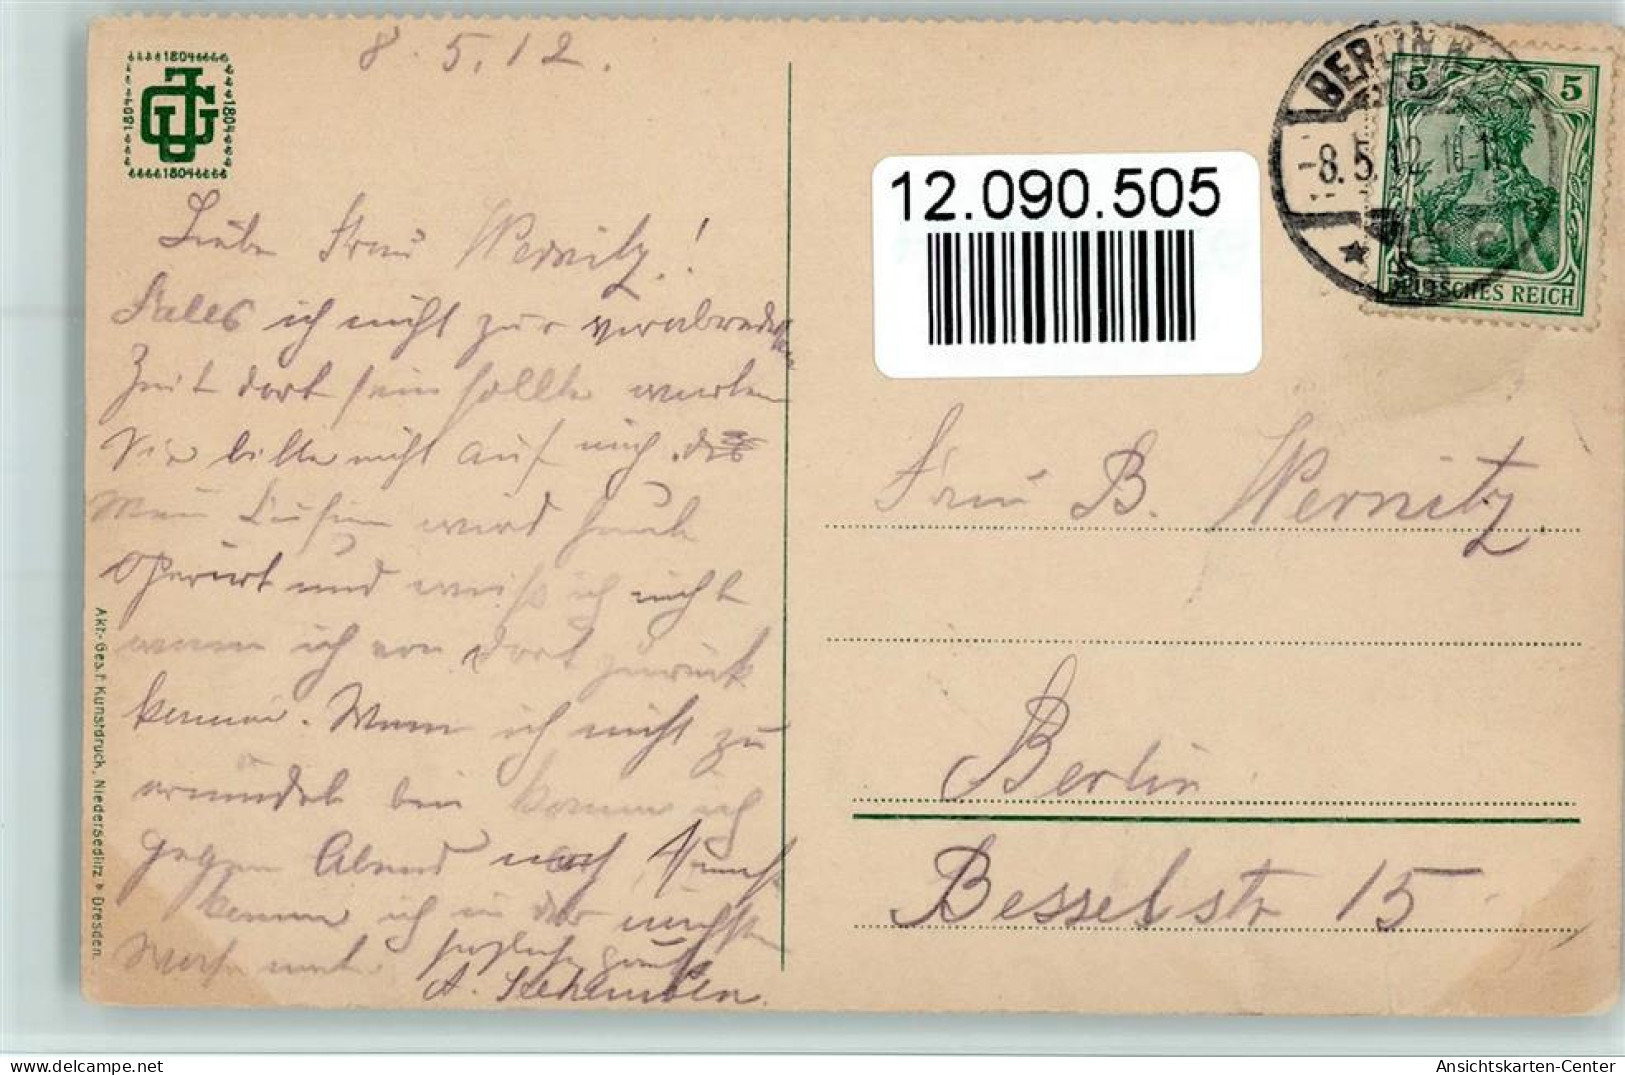 8.5.12.
1804
1804
1804
1804
Liebe Frau Wernitz!
Falls ich nicht zur verabredeten
Zeit dort sein sollte warten
Sie bitte nicht auf mich.
wird heute
operirt und weiß ich nicht
wann ich von dort zurück
komme. Wenn ich nicht zu
bin komme ich
gegen Abend noch
komme ich in der nächsten
Woche mal. herzlichen Gruß
A.
Akt.-Ges. f. Kunstdruck, Niedersedlitz-Dresden.
BERLIN
-8.5.12.10-11
5 5
DEUTSCHES REICH
12.090.505
Frau B. Wernitz
Berlin
Besselstr 15
Ansichtskarten-Center